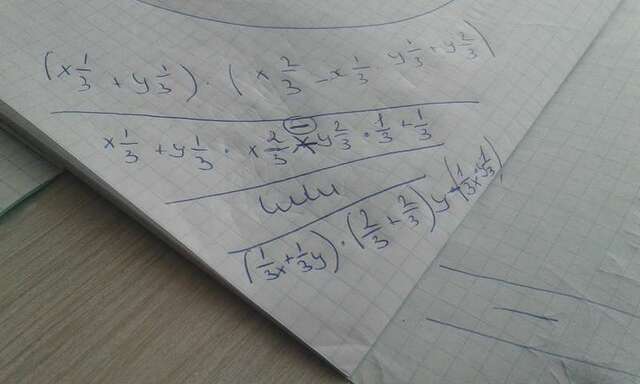 (x 1/3 + y 1/3) · (x 2/3 - x 1/3 y 1/3 + y 2/3)
x 1/3 + y 1/3 · x 2/3 y 2/3 · 1/3 + 1/3
или
(1/3x + 1/3y) · (2/3 + 2/3) y